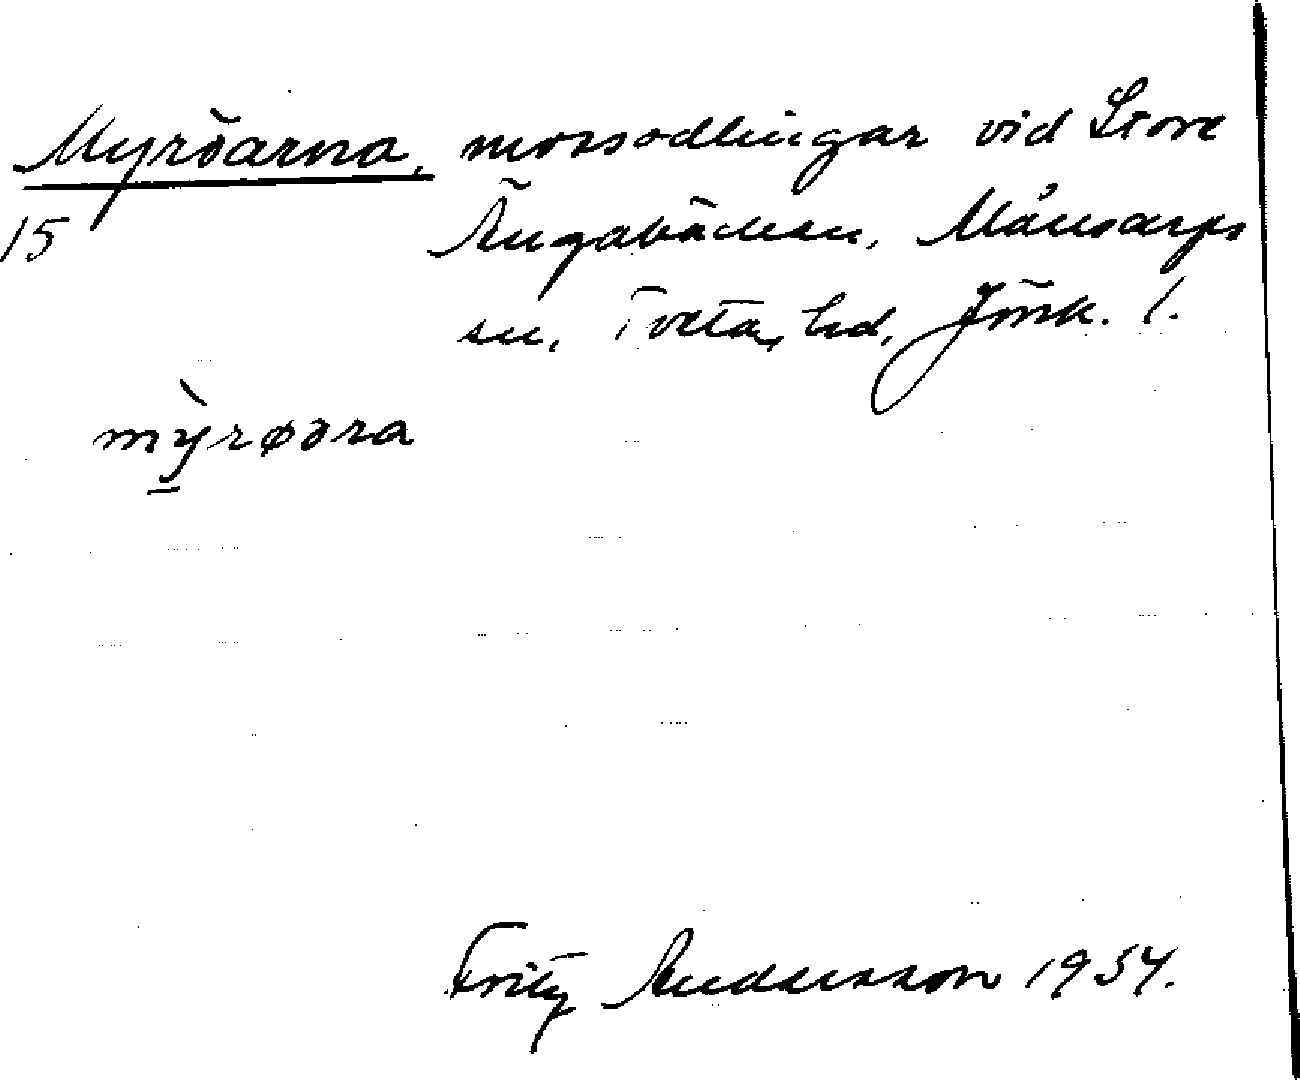 Myröarna, mossodlingar vid Store
15 Ängabäcken, Månsarps
sn, Tveta hd, Jönk. l.
mỳrøəra
Fritz Andersson 1934.